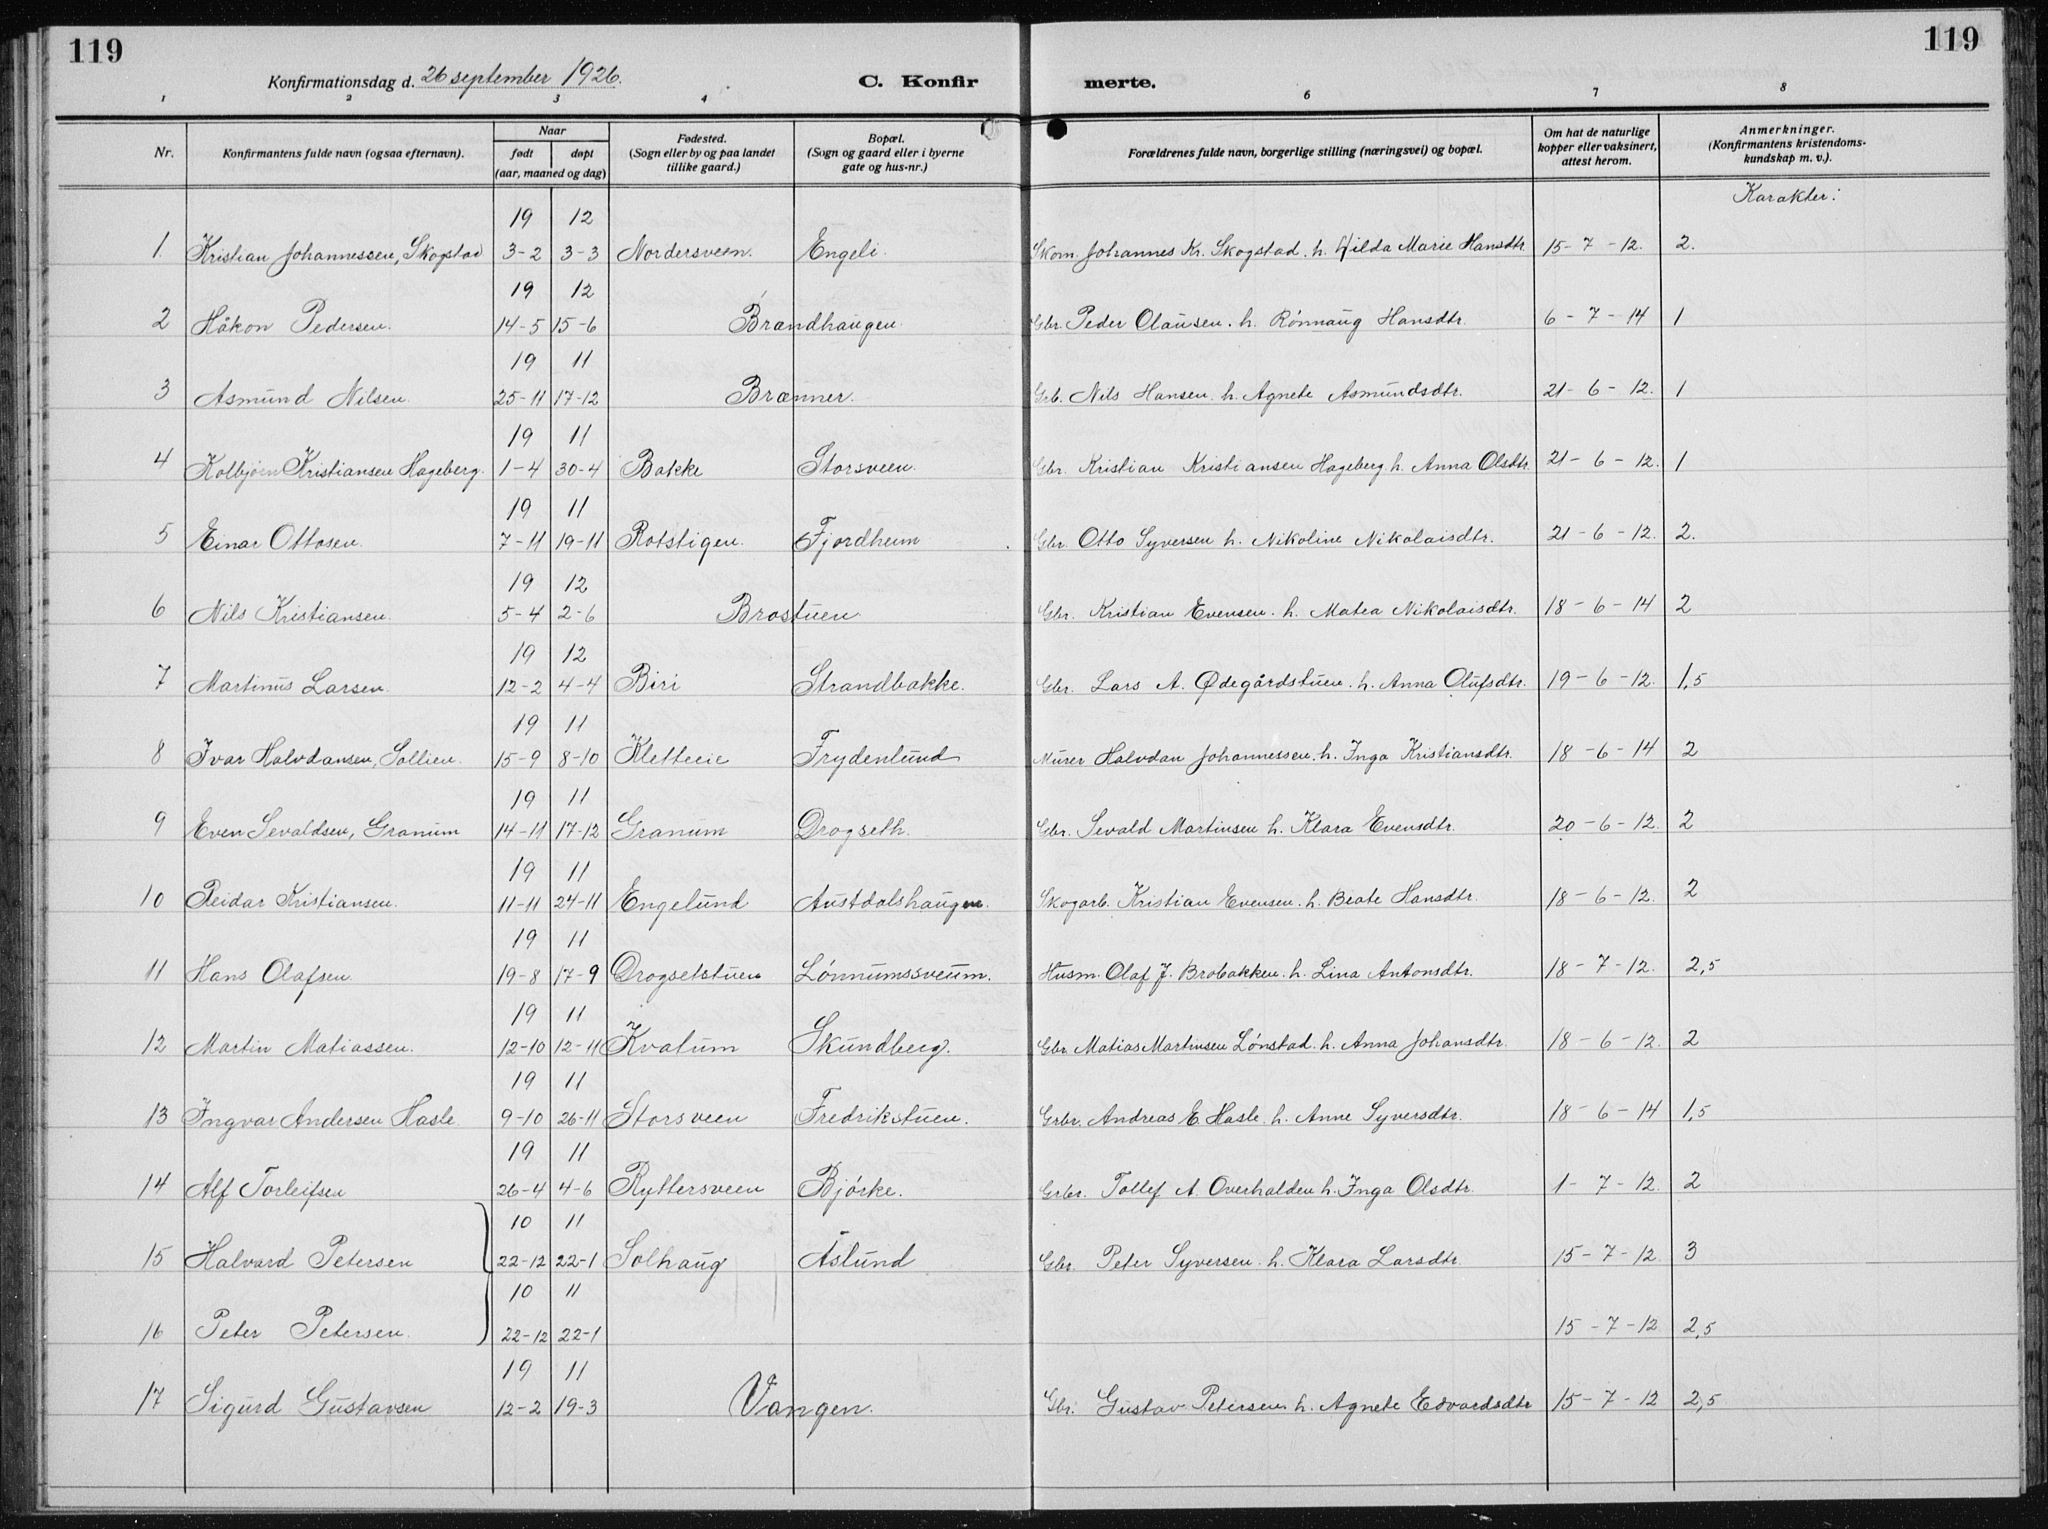 119
119
Konfirmationsdag d. 26 september 1926.
C. Konfir
merte.
1 2 3 4 6 7 8
Nr.
Konfirmantens fulde navn (ogsaa efternavn).
Naar
født døpt
(aar, maaned og dag)
Fødested.
(Sogn eller by og paa landet
tillike gaard.)
Bopæl.
(Sogn og gaard eller i byerne
gate og hus-nr.)
Forældrenes fulde navn, borgerlige stilling (næringsvei) og bopæl.
Om hat de naturlige
kopper eller vaksinert,
attest herom.
Anmerkninger.
(Konfirmantens kristendoms-
kundskap m. v.).
Karakter:
19 12
1. Kristian Johannessen, Skogstad 3-2 3-3 Nordersveen. Engeli. Skom. Johannes Kr. Skogstad. h. Hilda Marie Hansdtr 15-7-12. 2.
19 12
2 Håkon Pedersen. 14-5 15-6 Brændhaugen. Gbr. Peder Olausen. h. Rønnaug Hansdtr. 6-7-14 1
19 11
3 Asmund Nilsen. 25-11 17-12 Brænner. Grb. Nils Hansen. h. Agnete Asmundsdtr. 21-6-12. 1
19 11
4 Kolbjørn Kristiansen Hageberg. 1-4 30-4 Bakke Storsveen. Gbr. Kristian Kristiansen Hageberg h. Anna Olsdtr. 21-6-12. 1
19 11
5 Einar Ottosen. 7-11 19-11 Rotstigen. Fjordheim Gbr. Otto Syversen h. Nikoline Nikolaisdtr. 21-6-12. 2.
19 12
6 Nils Kristiansen. 5-4 2-6 Brostuen Gbr. Kristian Evensen. h. Matea Nikolaisdtr. 18-6-14 2
19 12
7 Martinus Larsen. 12-2 4-4 Biri Strandbakke. Gbr. Lars A. Ødegårdstuen. h. Anna Olufsdtr. 19-6-12. 1,5
19 11
8 Ivar Halvdansen, Sollien. 15-9 8-10 Kletteeie Frydenlund Murer Halvdan Johannessen. h. Inga Kristiansdtr. 18-6-14 2
19 11
9 Even Sevaldsen, Granum 14-11 17-12 Granum Drogseth. Gbr. Sevald Martinsen h. Klara Evensdtr. 20-6-12. 2
19 11
10 Reidar Kristiansen. 11-11 24-11 Engelund Austdalshaugen. Skogarb. Kristian Evensen. h. Beate Hansdtr. 18-6-12. 2
19 11
11 Hans Olafsen 19-8 17-9 Drogsetstuen Lønnumssveum. Husm. Olaf J. Brobakken. h. Lina Antonsdtr. 18-7-12. 2,5
19 11
12 Martin Matiassen. 12-10 12-11 Kvatum Skundberg. Gbr. Matias Martinsen Lønstad. h. Anna Johansdtr. 18-6-12. 2
19 11
13 Ingvar Andersen Hasle. 9-10 26-11 Storsveen Fredrikstuen. Grbr. Andreas E. Hasle. h. Anne Syversdtr. 18-6-14 1,5
19 11
14 Alf Torleifsen 26-4 4-6 Ryttersveen Bjørke. Grbr. Tollef A. Overhalden h. Inga Olsdtr. 1-7-12. 2
10 11
15 Halvard Petersen 22-12 22-1 Solhaug Åslund Gbr. Peter Syversen. h. Klara Larsdtr. 15-7-12. 3
10 11
16 Peter Petersen. 22-12 22-1 15-7-12 2,5
19 11
17 Sigurd Gustavsen 12-2 19-3 Vangen. Gbr. Gustav Petersen h. Agnete Edvardsdtr 15-7-12 2,5